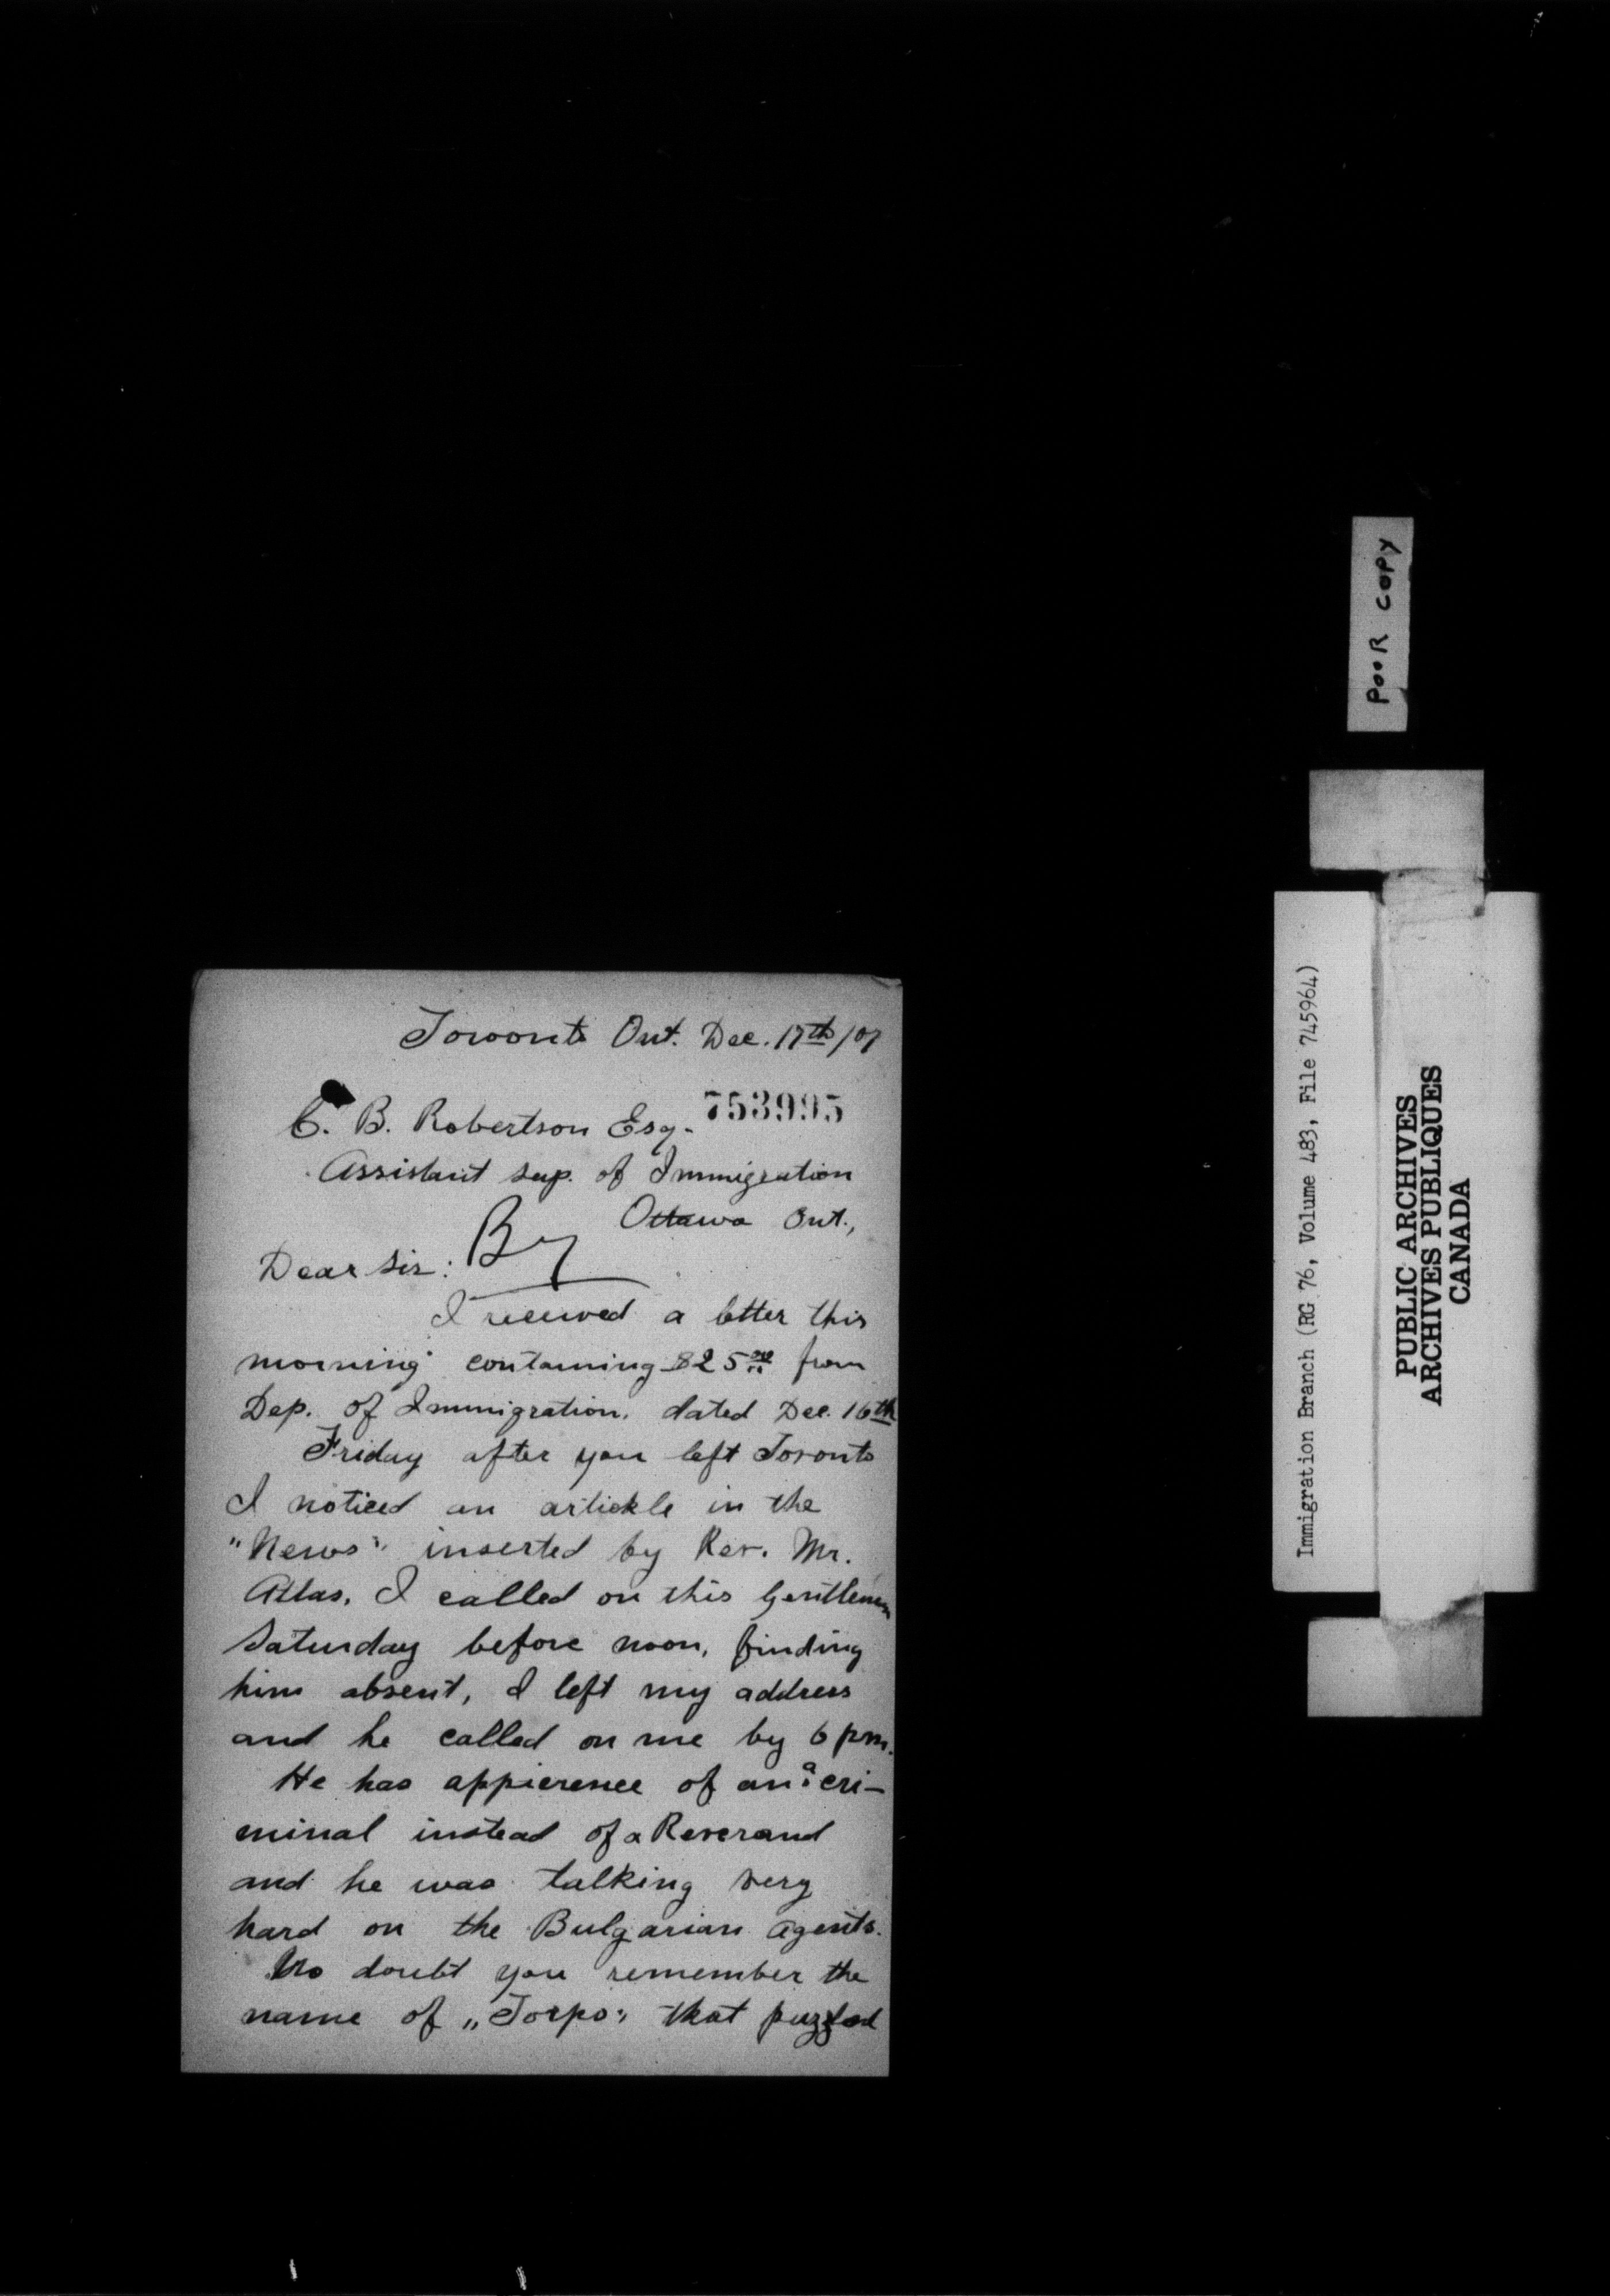 Toronto Ont. Dec. 17th/07
753995
C. B. Robertson Esq.
Assistant sup. of Immigration
Ottawa Ont.,
Dear Sir:
I received a letter this
morning containing $25.00 from
Dep. of Immigration. dated Dec. 16th
Friday after you left Toronto
I noticed an artickle in the
"News" inserted by Rev. Mr.
Atlas. I called on this Gentlemen
Saturday before noon, finding
him absent, I left my address
and he called on me by 6 pm.
He has appierence of an a cri-
minal instead of a Reverand
and he was talking very
hard on the Bulgarian Agents.
No doubt you remember the
name of „Torpo" that puzzled
POOR COPY
Immigration Branch (RG 76, Volume 483, File 745964)
PUBLIC ARCHIVES
ARCHIVES PUBLIQUES
CANADA